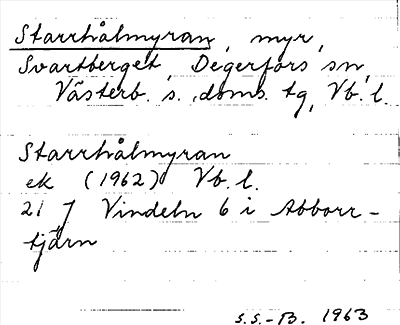 Starrhålmyran, myr,
Svartberget, Degerfors sn,
Västerb. s. doms. tg, Vb. l.
Starrhålmyran
ek (1962) Vb. l.
21 7 Vindeln 6 i Abborr-
tjärn
S.S.-B. 1963